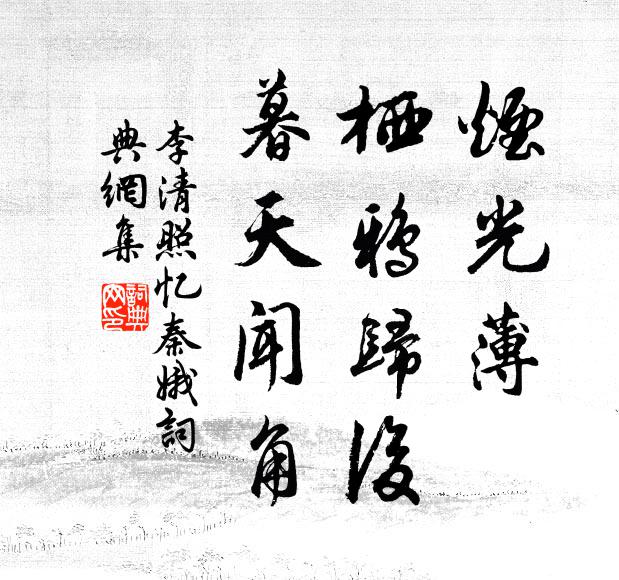 煙光薄
栖鴉歸後
暮天聞角
李清照忆秦娥詞
典網集
詞典
网印